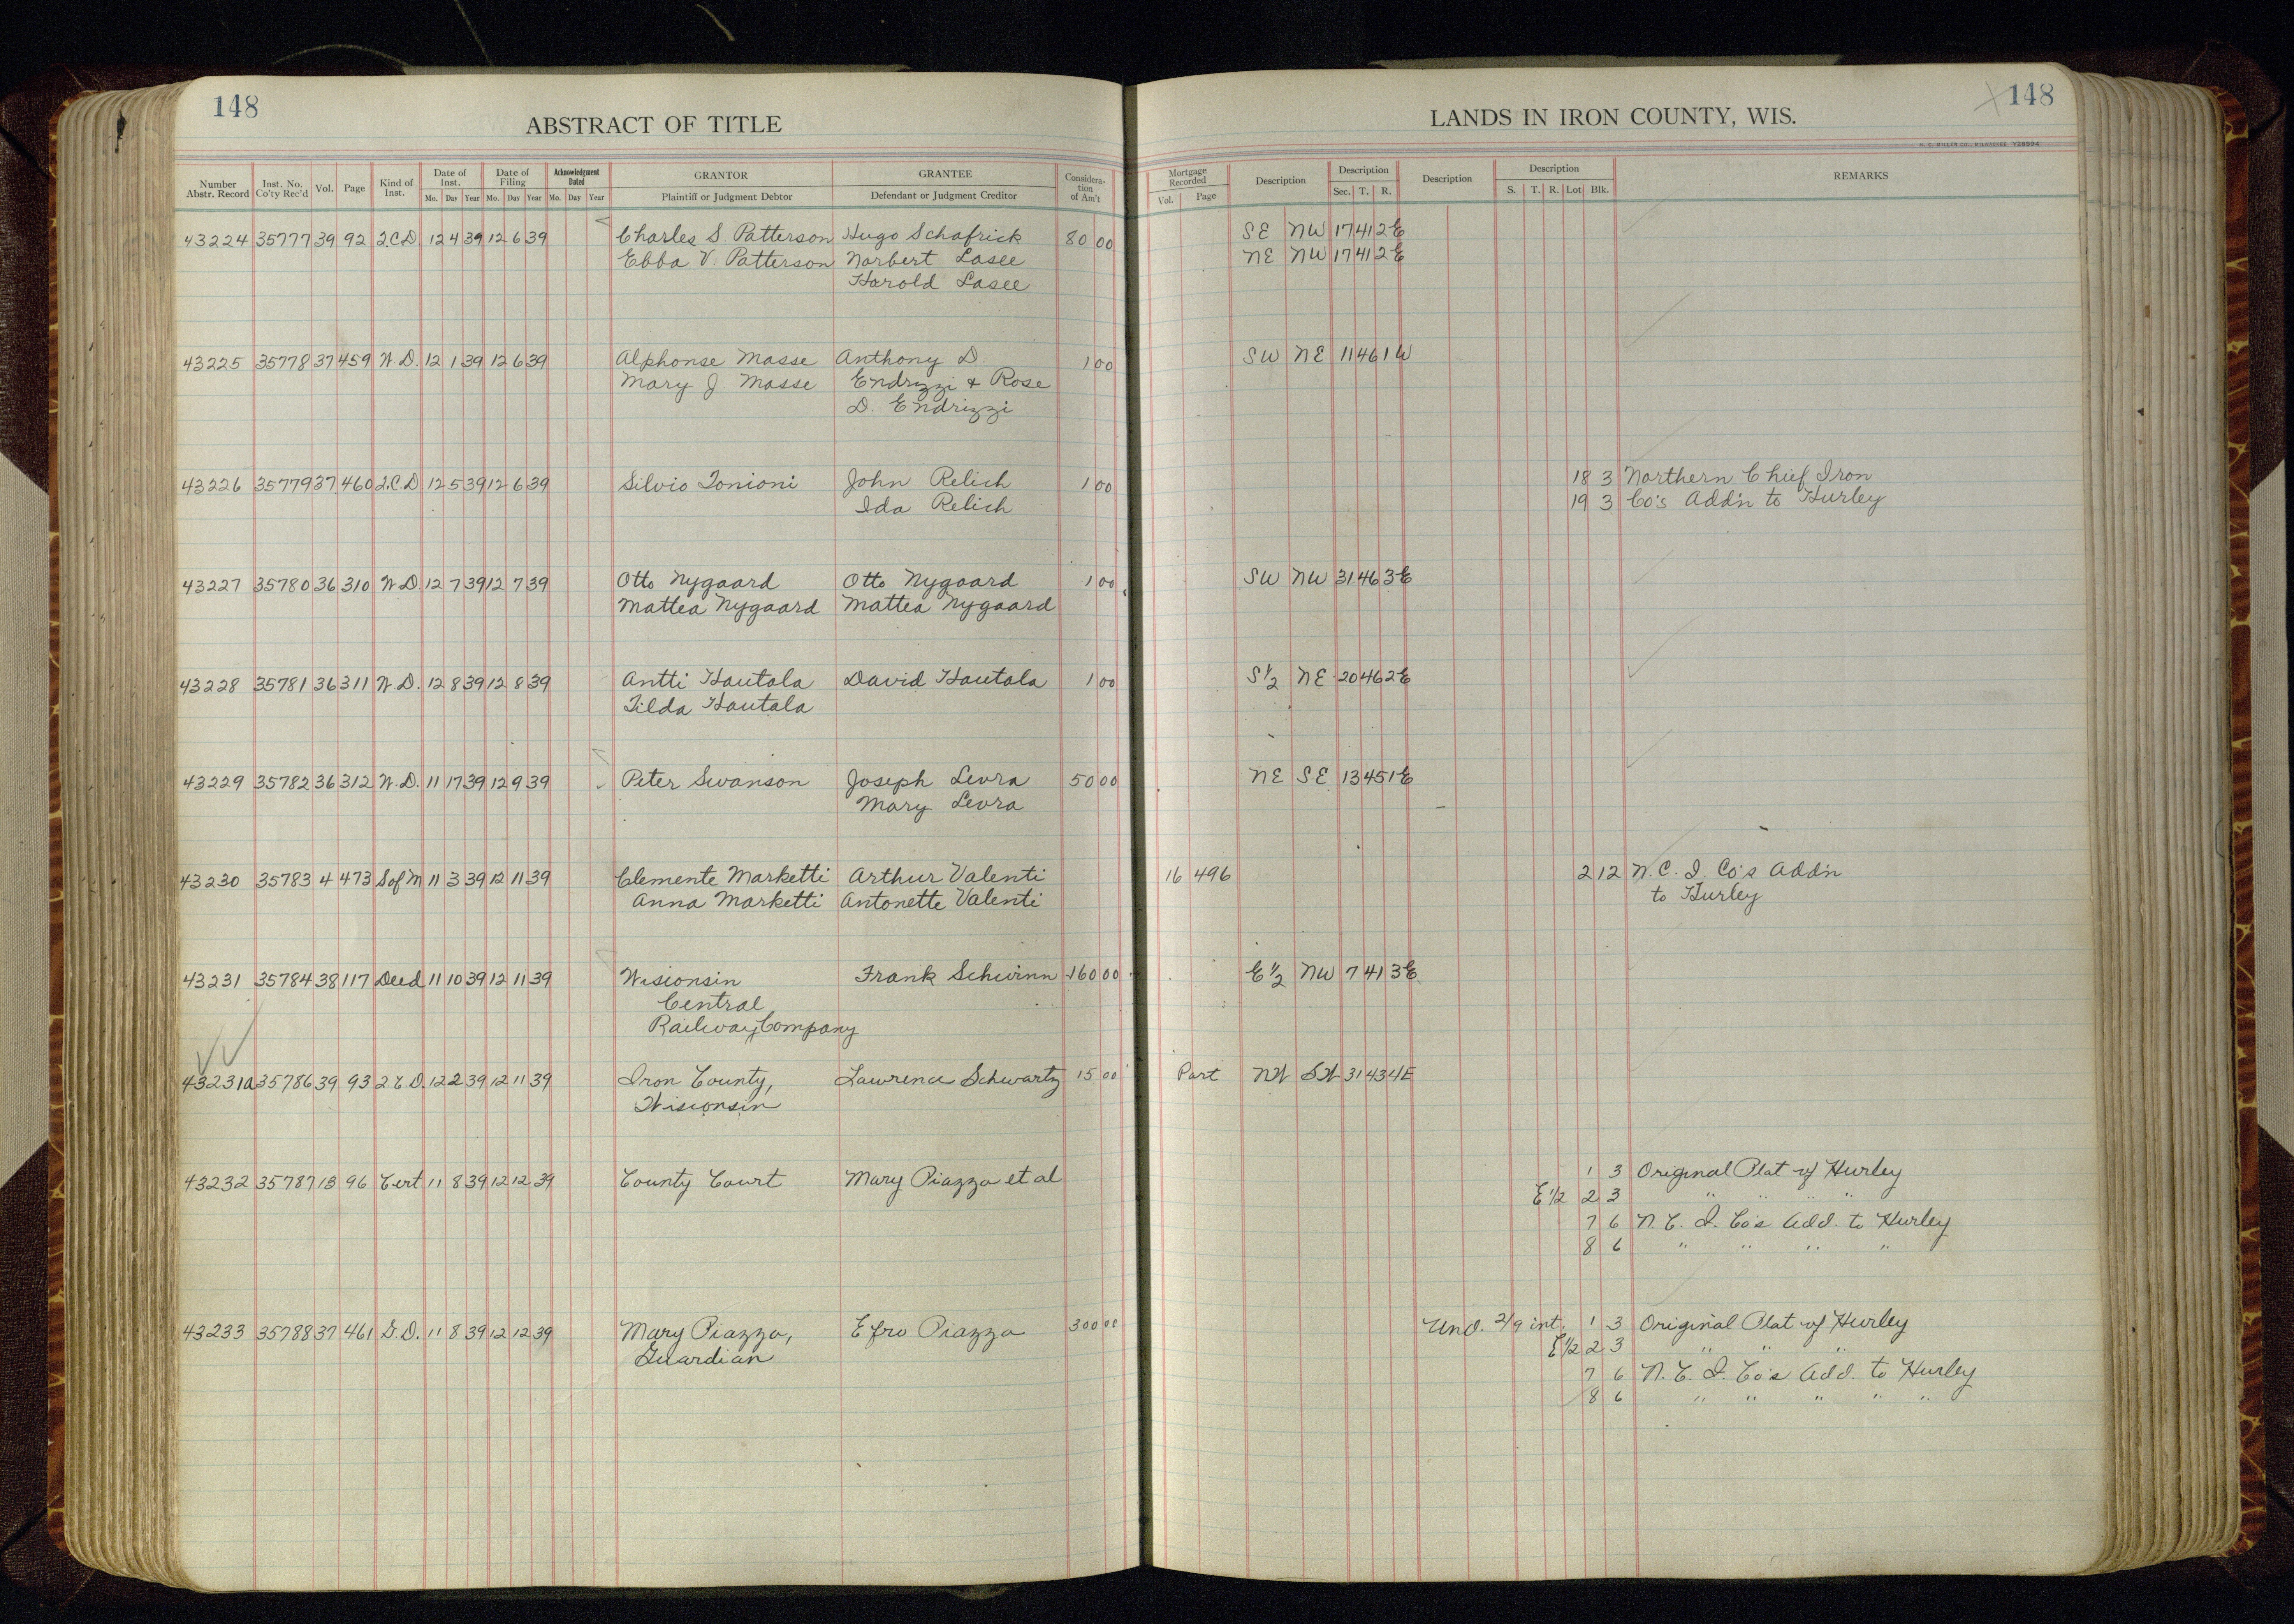 148
ABSTRACT OF TITLE
Number Abstr. Record Inst. No. Co'ty Rec'd Vol. Page Kind of Inst. Date of Inst. Mo. Day Year Date of Filing Mo. Day Year Acknowledgment Dated Mo. Day Year GRANTOR Plaintiff or Judgment Debtor GRANTEE Defendant or Judgment Creditor Consideration of Am't
43224 35777 39 92 2.C.D. 12 4 39 12 6 39 Charles S. Patterson Hugo Schafrick 80 00
Ebba V. Patterson Norbert Lasee
Harold Lasee
43225 35778 37 459 W.D. 12 1 39 12 6 39 Alphonse Masse Anthony D. 1 00
Mary J. Masse Endrizzi & Rose
D. Endrizzi
43226 35779 37 460 2.C.D 12 5 39 12 6 39 Silvio Tonioni John Relich 1 00
Ida Relich
43227 35780 36 310 W.D. 12 7 39 12 7 39 Otto Nygaard Otto Nygaard 1 00
Mattea Nygaard Mattea Nygaard
43228 35781 36 311 W.D. 12 8 39 12 8 39 Antti Hautala David Hautala 1 00
Tilda Hautala
43229 35782 36 312 W.D. 11 17 39 12 9 39 Peter Swanson Joseph Levra 50 00
Mary Levra
43230 35783 4 473 S of M 11 3 39 12 11 39 Clemente Marketti Arthur Valenti
Anna Marketti Antonette Valenti
43231 35784 38 117 Deed 11 10 39 12 11 39 Wisionsin Frank Schwinn 160 00
Central
Railway Company
43231a 35786 39 93 2.C.D. 12 2 39 12 11 39 Iron County, Lawrence Schwartz 15 00
Wisconsin
43232 35787 13 96 Cert 11 8 39 12 12 39 County Court Mary Piazza et al
43233 35788 37 461 G.D. 11 8 39 12 12 39 Mary Piazza, Efro Piazza 300 00
Guardian
148
LANDS IN IRON COUNTY, WIS.
H. C. MILLER CO., MILWAUKEE Y28994
Mortgage Recorded Vol. Page Description Description Sec. T. R. Description Description S. T. R. Lot Blk. REMARKS
SE NW 17 41 2E
NE NW 17 41 2E
SW NE 11 46 1W
18 3 Northern Chief Iron
19 3 Co's Add'n to Hurley
SW NW 31 46 3E
S½ NE 20 46 2E
NE SE 13 45 1E
16 496 2 12 N.C.I. Co's Add'n
to Hurley
E½ NW 7 41 3E
Part NW SW 31 43 4E
1 3 Original Plat of Hurley
E½ 2 3 " " " "
7 6 N.C.I. Co's Add. to Hurley
8 6 " " " "
Und. 2/9 int. 1 3 Original Plat of Hurley
E½ 2 3 " " "
7 6 N.C.I. Co's Add. to Hurley
8 6 " " " " "